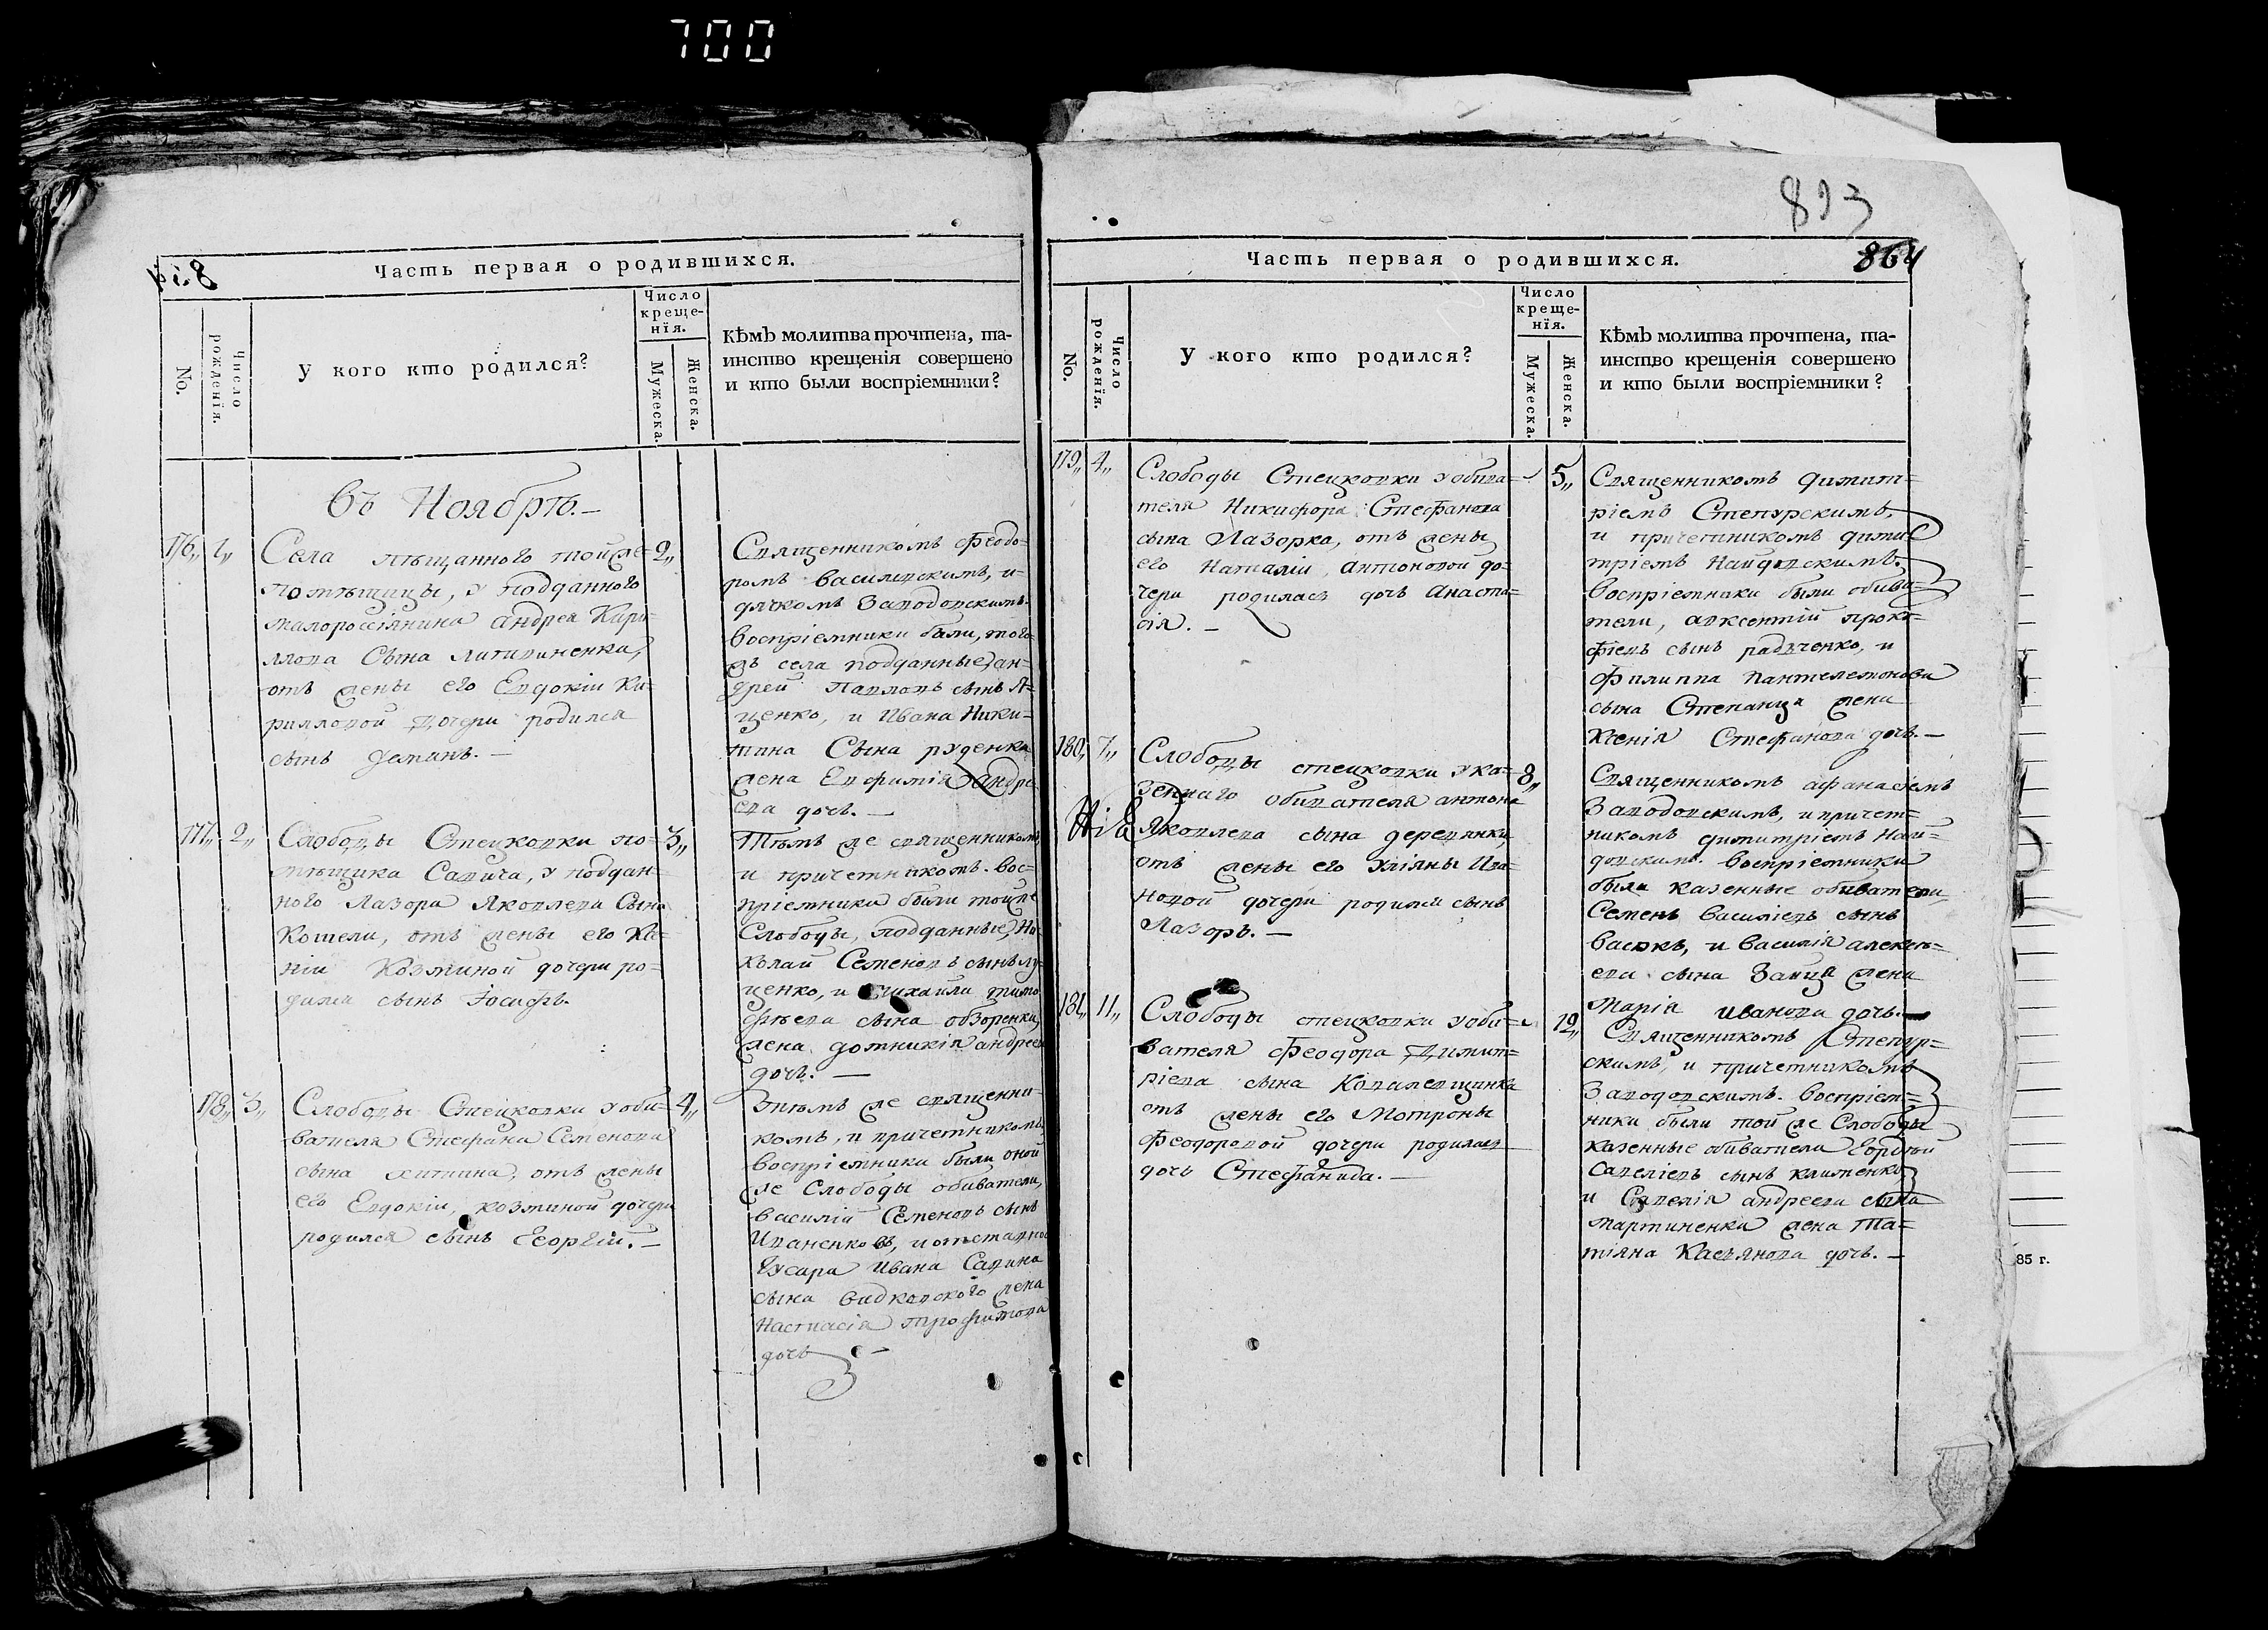 700
Часть первая о родившихся.
No.
Число рожденїя.
У кого кто родился?
Число
креще-
нїя.
Мужеска.
Женска.
Кѣмъ молитва прочтена, та-
инство крещенія совершено
и кто были воспріемники?
Въ Ноябрѣ.—
176,, 1,, Села пѣщанного той же
помѣщицы, у подданного
малороссіянина андрея Кири-
ллова Сына литвиненка,
отъ жены его Евдокіи Ки-
рилловой дочери родился
сынъ Деміанъ.—
2,,
Священникомъ Феодо-
ромъ василевскимъ, и
дячкомъ Заводовскимъ.
воспріемники были, того
жъ села подданные, ан-
дрей Павловъ сынъ Я-
ценко, и Ивана Ники-
тина Сына руденка
жена Евфимія андре-
ева дочь.—
177,, 2,, Слободы Стецковки по-
мѣщика Савича, у поддан-
ного Лазора Яковлева Сына
Кошели, отъ жены его Ксе-
ніи Козминой дочери ро-
дился сынъ Іосифъ.
3,,
Тѣмъ же священникомъ
и причетникомъ. вос-
пріемники были той же
Слободы, подданные, Ни-
колай Семеновъ сынъ лу-
ценко, и михаила тимо-
фѣева сына обзоренка,
жена домникія андреева
дочь.—
178,, 3,, Слободы Стецковки у оби-
вателя Стефана Семенова
сына хитрина, отъ жены
его Евдокіи, козминой дочери
родился сынъ Георгій.—
4,,
Энѣмъ же священни-
комъ, и причетникомъ.
воспріемники были оной
же Слободы обиватели,
василій Семеновъ сынъ
Иваненковъ, и отставного
Гусара Ивана Савина
сына видковского жена
Настасія трофимова
дочь—
893
864
Часть первая о родившихся.
No.
Число рожденїя.
У кого кто родился?
Число
креще-
нїя.
Мужеска.
Женска.
Кѣмъ молитва прочтена, та-
инство крещенія совершено
и кто были воспріемники?
179,, 4,, Слободы Стецковки у обива-
теля Никифора Стефанова
сына Лазорка, отъ жены
его Наталіи антоновой до-
чери родилась дочь Анаста-
сія.—
5,,
Священникомъ димит-
ріемъ Степурскимъ,
и причетникомъ дими-
тріемъ Найдовскимъ.
воспріемники были обива-
тели, авксентій проко-
фіевъ сынъ радченко, и
филиппа пантелемонова
сына Степанца жена
Ксенія Стефанова дочь.—
180,, 7,, Слободы стецковки у ка-
зеннаго обивателя антона
Яковлева сына деревянки,
отъ жены его Уліяны Ива-
новой дочери родился сынъ
Лазоръ.—
8,,
Священникомъ афанасіемъ
Заводовскимъ, и причет-
никомъ димитріемъ Най-
довскимъ. воспріемники
были казенные обиватели,
Семенъ василіевъ сынъ
васюкъ, и василія алексѣ-
ева сына Заица жена
Марія иванова дочь.—
181,, 11,, Слободы стецковки у оби-
вателя Феодора Димит-
ріева сына Ковалевщинка
отъ жены его Мотроны
Феодоровой дочери родилась
дочь Стефанида.—
12,,
Священникомъ Степур-
скимъ, и причетникомъ
Заводовскимъ. воспріем-
ники были той же Слободы
казенные обиватели Георгій
савеліевъ сынъ клименко
и Савелія андреева сына
мартиненка жена Та-
тіяна Касьянова дочь.—
85 г.